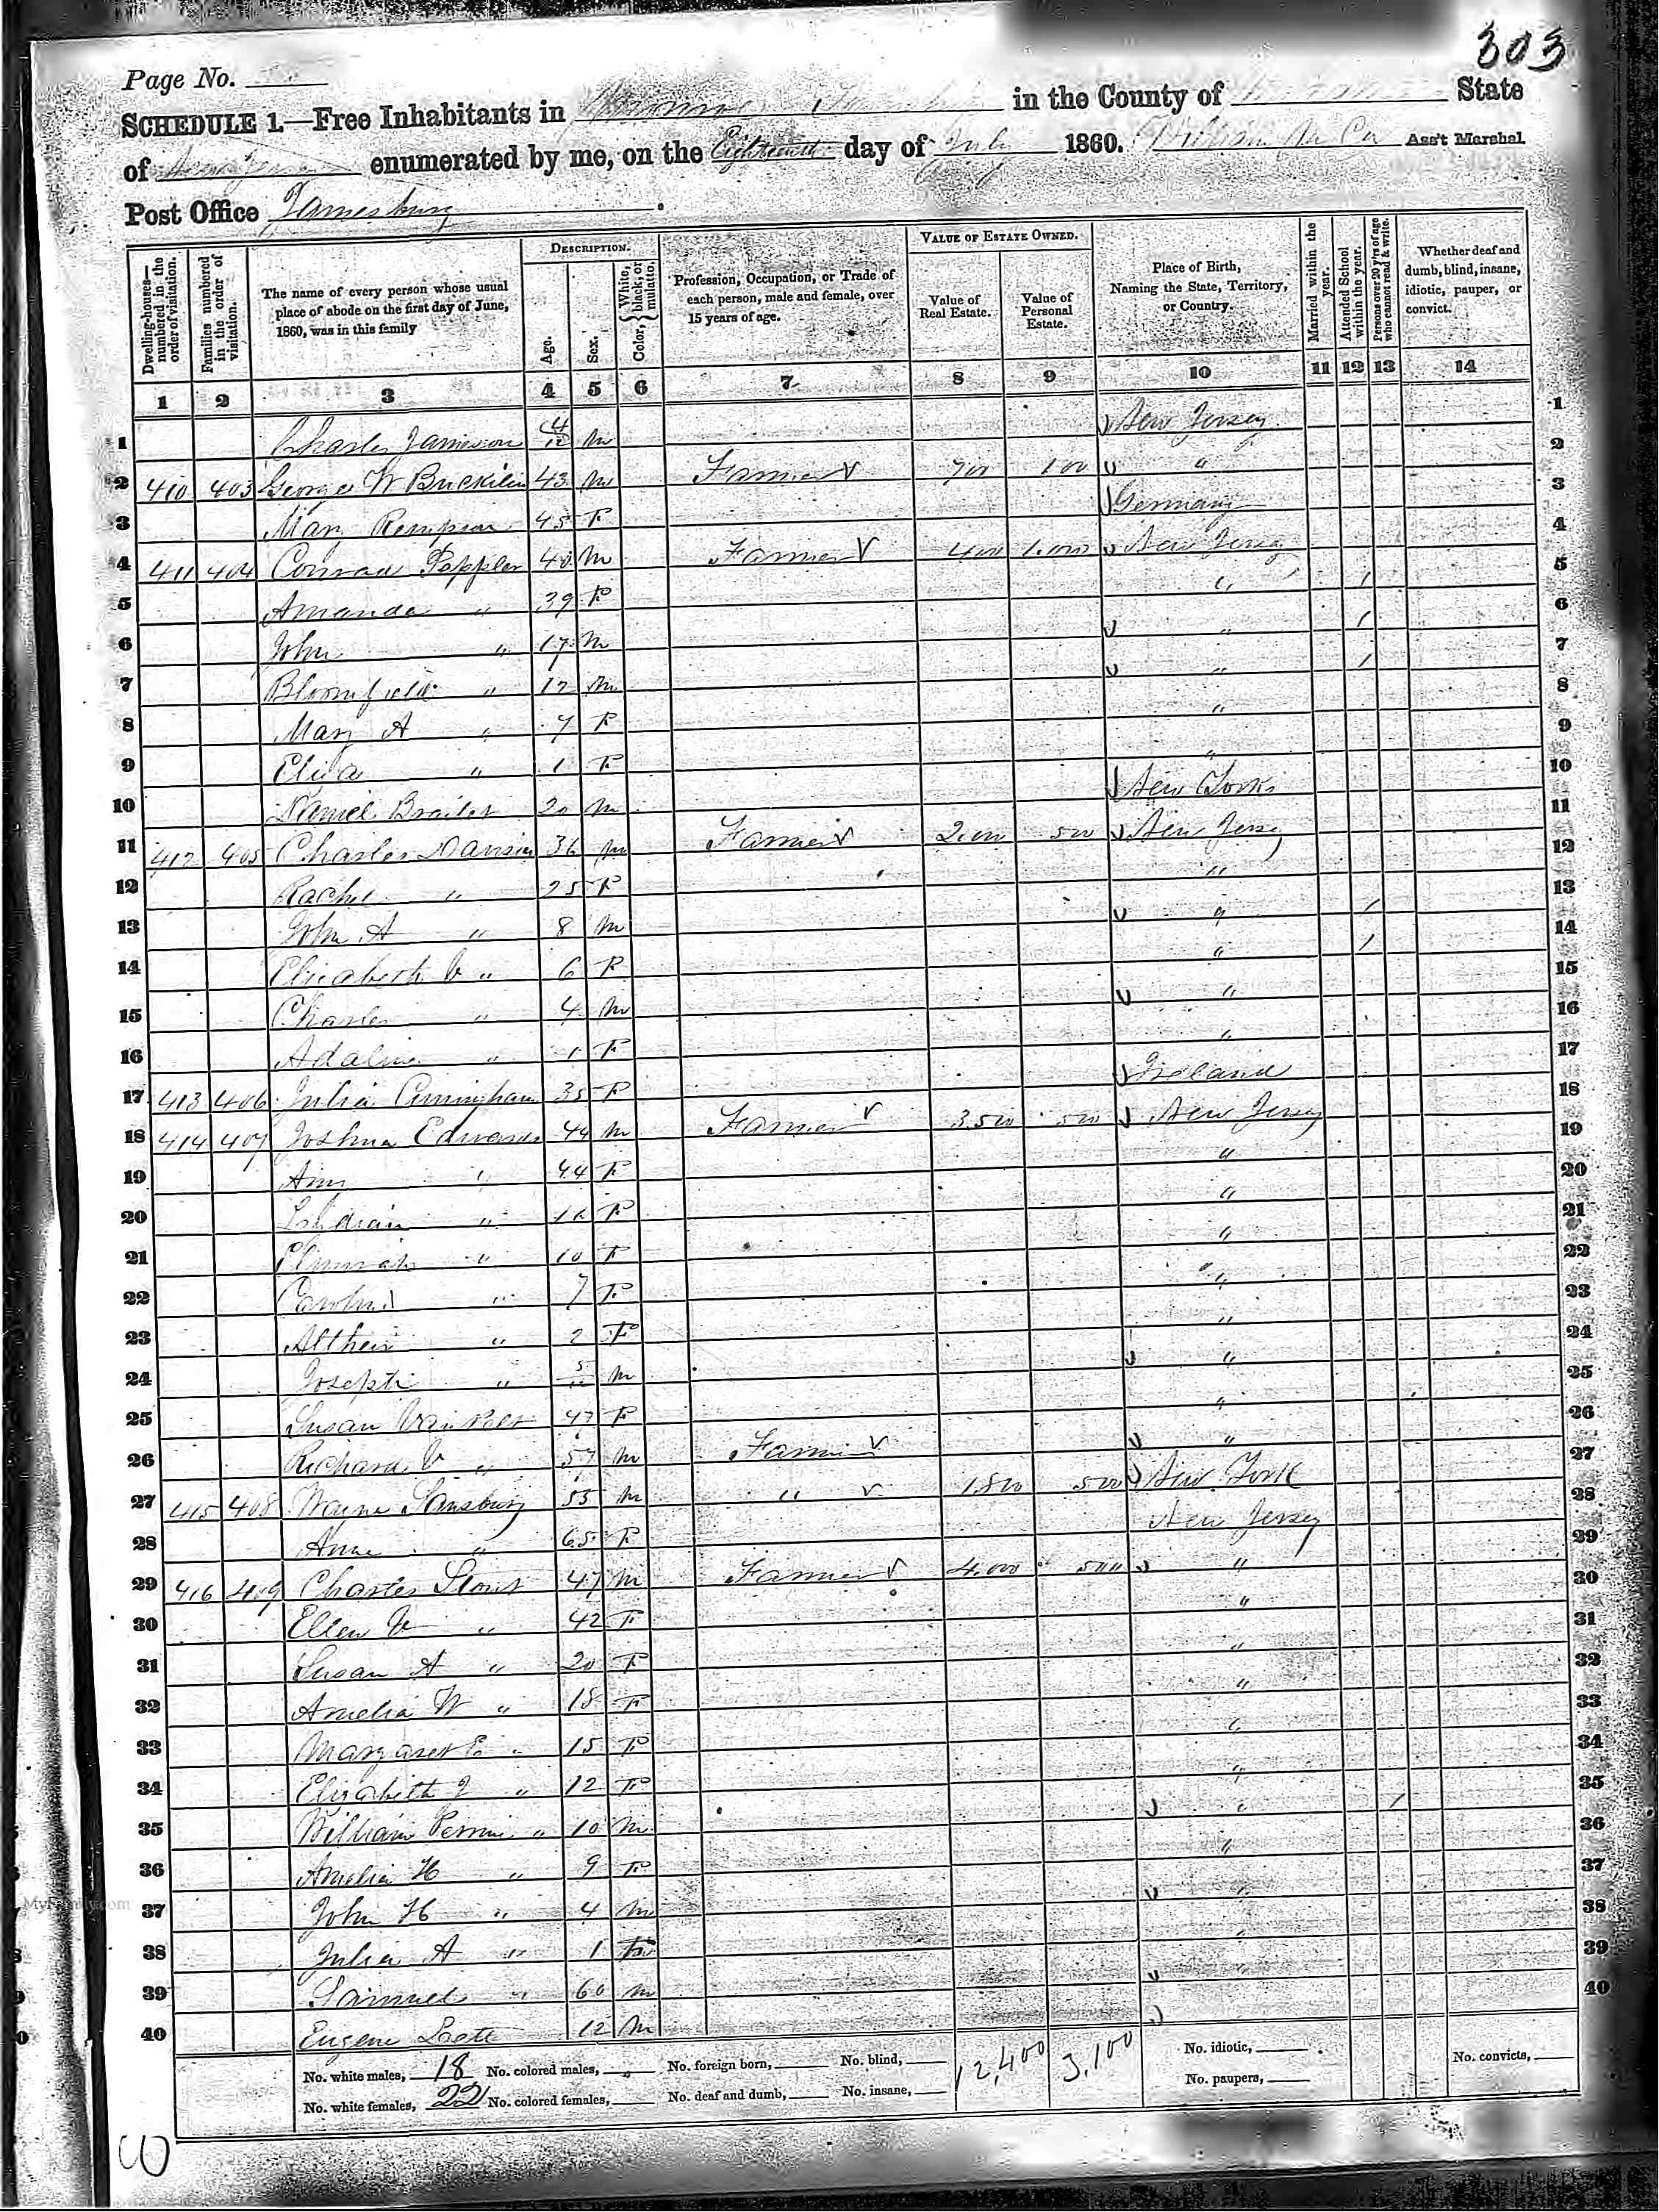 303
Page No.
SCHEDULE 1.—Free Inhabitants in in the County of State
of enumerated by me, on the Eighteenth day of July 1860. William Ass't Marshal
Post Office Jamesburg
Dwelling-houses—numbered in the order of visitation.
Families numbered in the order of visitation.
The name of every person whose usual place of abode on the first day of June, 1860, was in this family
DESCRIPTION.
Age.
Sex.
Color, { White, black, or mulatto.
Profession, Occupation, or Trade of each person, male and female, over 15 years of age.
VALUE OF ESTATE OWNED.
Value of Real Estate.
Value of Personal Estate.
Place of Birth, Naming the State, Territory, or Country.
Married within the year.
Attended School within the year.
Persons over 20 y'rs of age who cannot read & write.
Whether deaf and dumb, blind, insane, idiotic, pauper, or convict.
1 2 3 4 5 6 7 8 9 10 11 12 13 14
1 Charles Jameson 4/12 m New Jersey 1
2 410 403 George W 43 m Farmer 700 100 " 2
3 Mary 45 F Germany 3
4 411 404 Conrad Peppler 40 m Farmer 400 1,000 New Jersey 4
5 Amanda " 39 F " / 5
6 John " 17 m " / 6
7 Bloomfield " 12 m " / 7
8 Mary A " 7 F " 8
9 Eliza " 1 F " 9
10 Daniel 20 m New York 10
11 412 405 Charles 36 m Farmer 2,000 500 New Jersey 11
12 Rachel " 25 F " 12
13 John A " 8 m " / 13
14 Elizabeth " 6 F " / 14
15 Charles " 4 m " 15
16 Adaline " 1 F " 16
17 413 406 Julia Cuningham 35 F Ireland 17
18 414 407 Joshua Edwards 44 m Farmer 3,500 500 New Jersey 18
19 Ann " 44 F " 19
20 " F " 20
21 " 10 F " 21
22 " 7 F " 22
23 " 2 F " 23
24 Joseph " 5/12 m " 24
25 Susan Van Pelt 47 F " 25
26 Richard " 57 m Farmer " 26
27 415 408 Wayne Sansbury 55 m " 1800 500 New York 27
28 Anne " 65 F New Jersey 28
29 416 409 Charles Stout 47 m Farmer 4,000 500 " 29
30 Ellen " 42 F " 30
31 Susan A " 20 F " 31
32 Amelia W " 18 F " 32
33 Margaret E " 15 F " 33
34 Elizabeth J " 12 F " 34
35 William Perrine " 10 m " / 35
36 Amelia H " 9 F " 36
37 John H " 4 m " 37
38 Julia A " 1 F " 38
39 Samuel " 60 m " 39
40 Eugene 12 m 40
No. white males, 18 No. colored males, No. foreign born, No. blind, 12,400 3,100 No. idiotic, No. convicts,
No. white females, 22 No. colored females, No. deaf and dumb, No. insane, No. paupers,
MyFamily.com